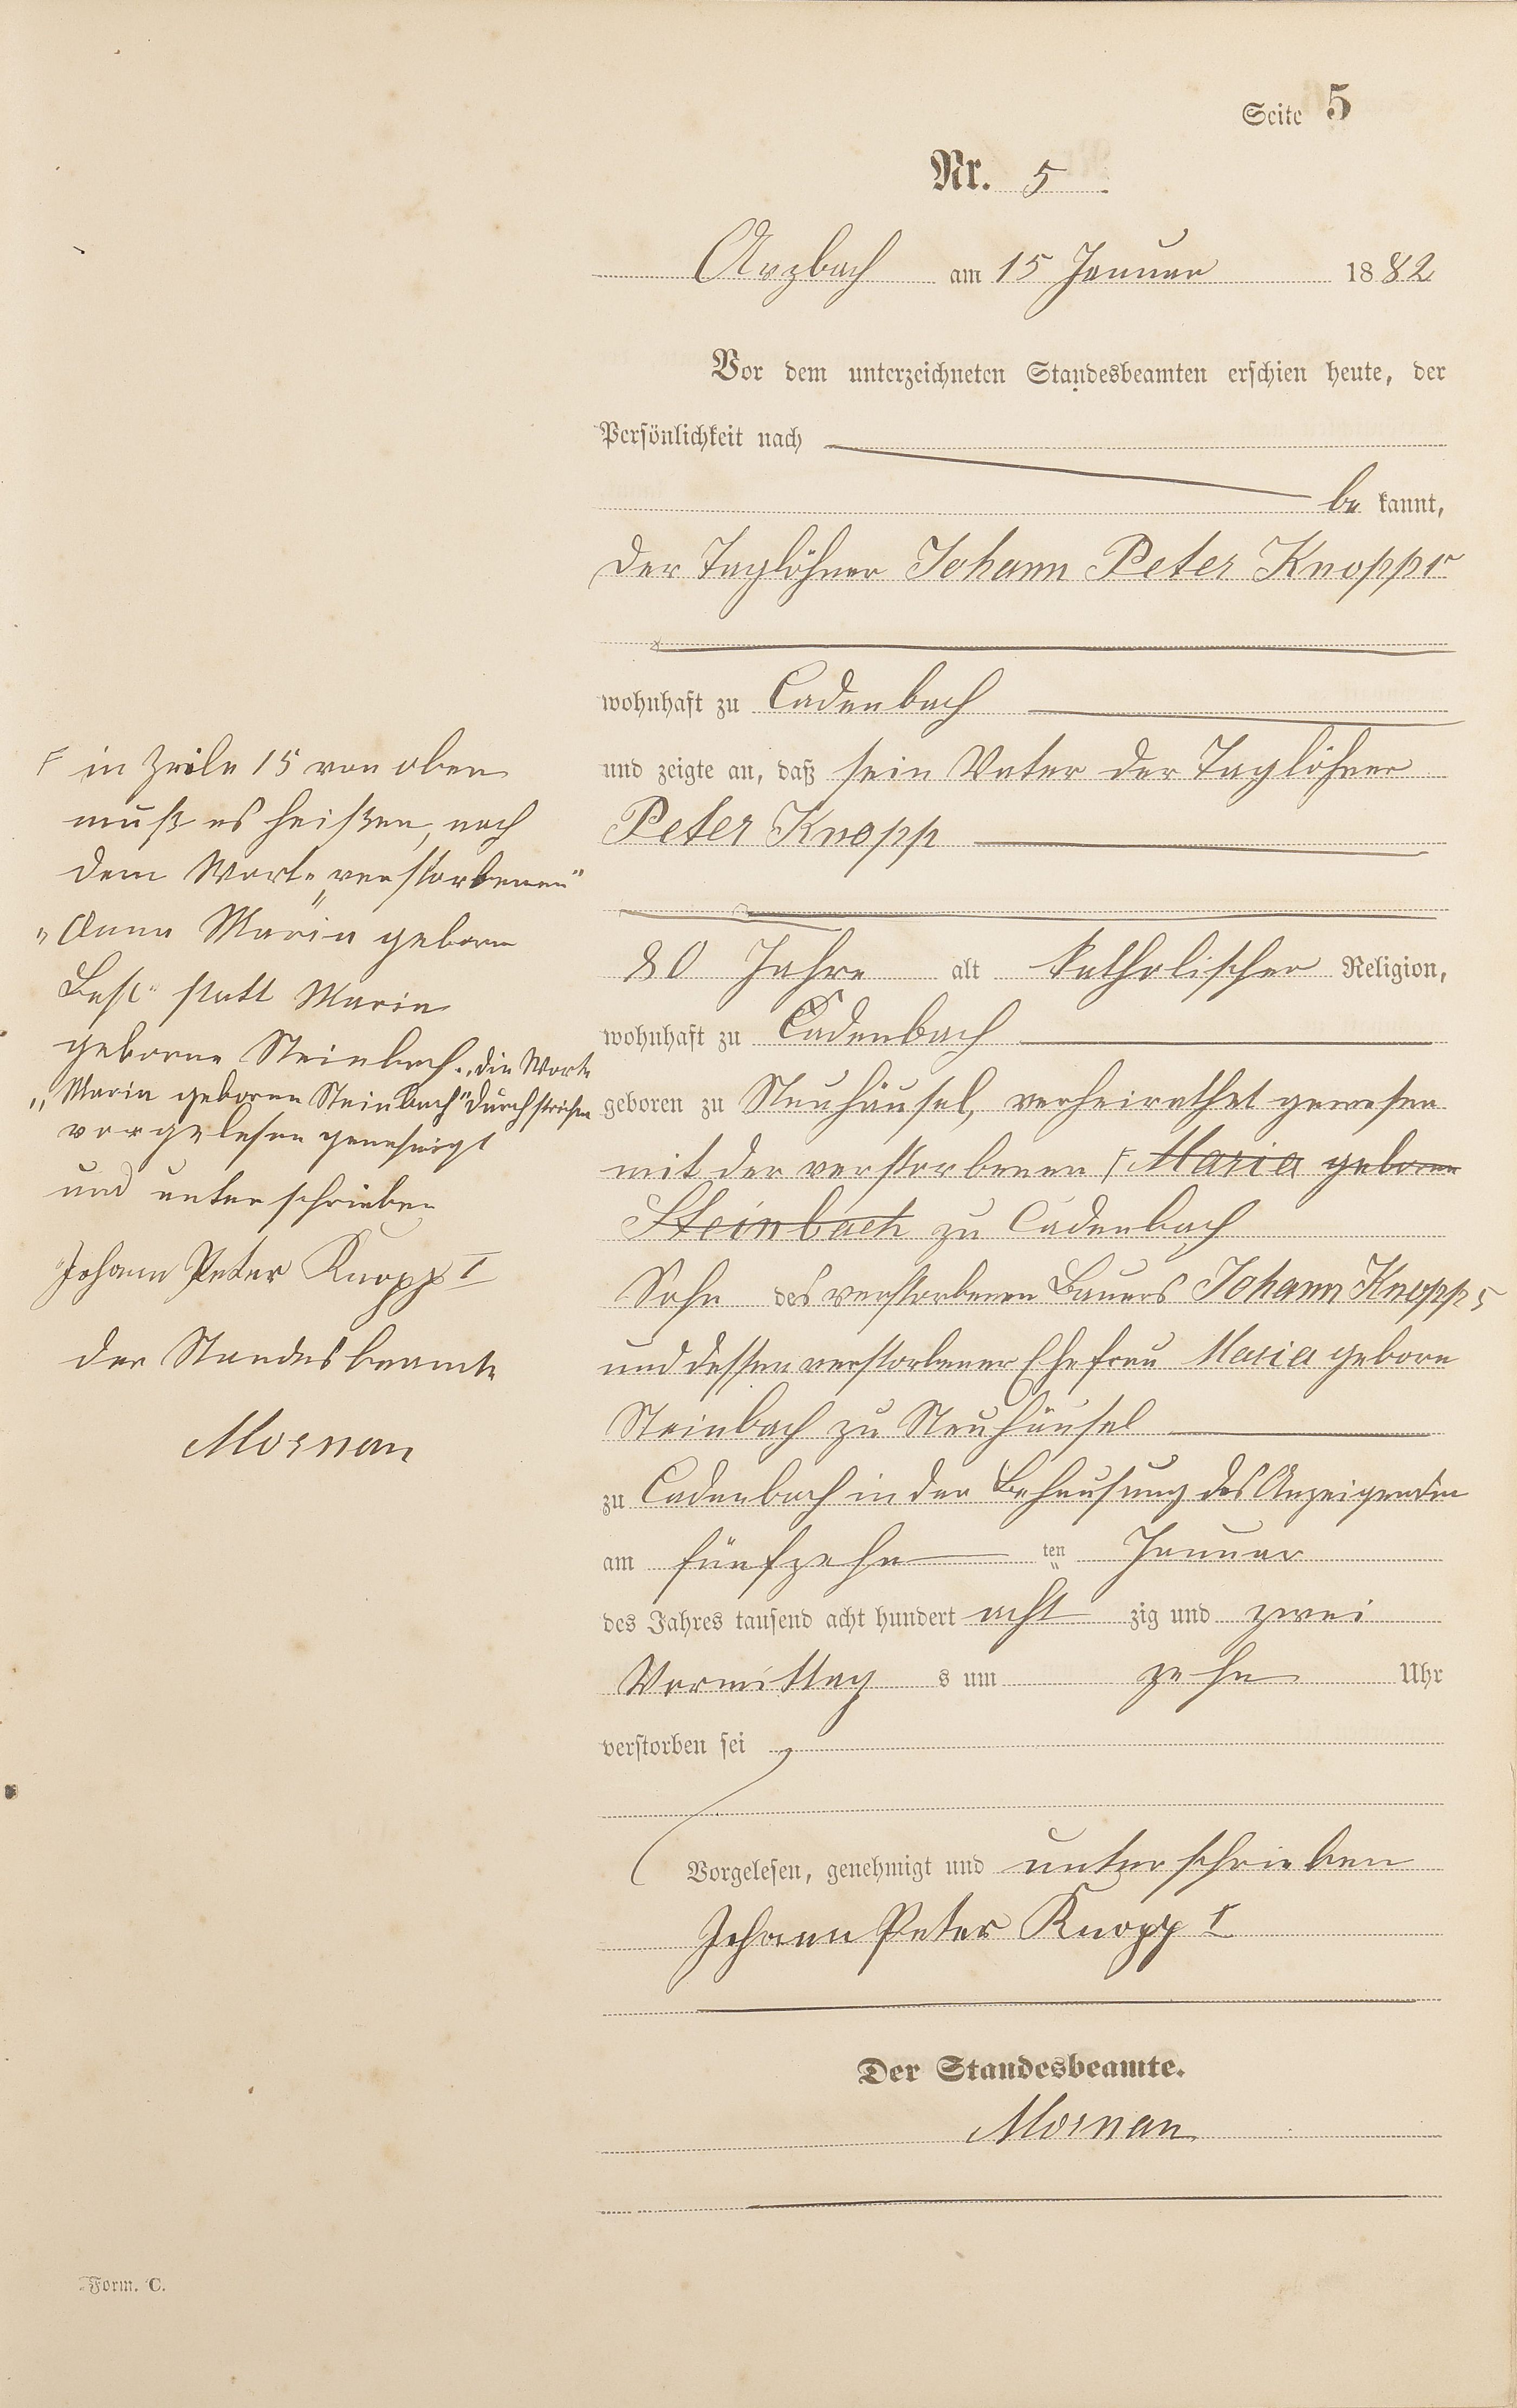 Seite 5
Nr. 5
Arzbach am 15 Januar 1882
Vor dem unterzeichneten Standesbeamten erschien heute, der
Persönlichkeit nach
be kannt,
der Taglöhner Johann Peter Knopp I
wohnhaft zu Cadenbach
und zeigte an, daß sein Vater der Taglöhner
Peter Knopp
80 Jahre alt katholischer Religion,
wohnhaft zu Cadenbach
geboren zu Neuhäusel, verheirathet gewesen
mit der verstorbenen F Maria geborne
Steinbach zu Cadenbach
Sohn des verstorbenen Bauers Johann Knopp
und dessen verstorbener Ehefrau Maria geborn
Steinbach zu Neuhäusel
zu Cadenbach in der Behausung des Anzeigenden
am fünfzehn ten Januar
des Jahres tausend acht hundert acht zig und zwei
Vormittag s um zehn Uhr
verstorben sei
Vorgelesen, genehmigt und unterschrieben
Johann Peter Knopp I
Der Standesbeamte.
Mornan
F in Zeile 15 von oben
muß es heißen, nach
dem Worte „verstorbenen"
„Anna Maria geborn
statt Maria
geborne Steinbach. „die Worte
„Maria geborne Steinbach" durchstrichen
vorgelesen genehmigt
und unterschrieben
Johann Peter Knopp I
der Standesbeamte
Mornan
Form. C.